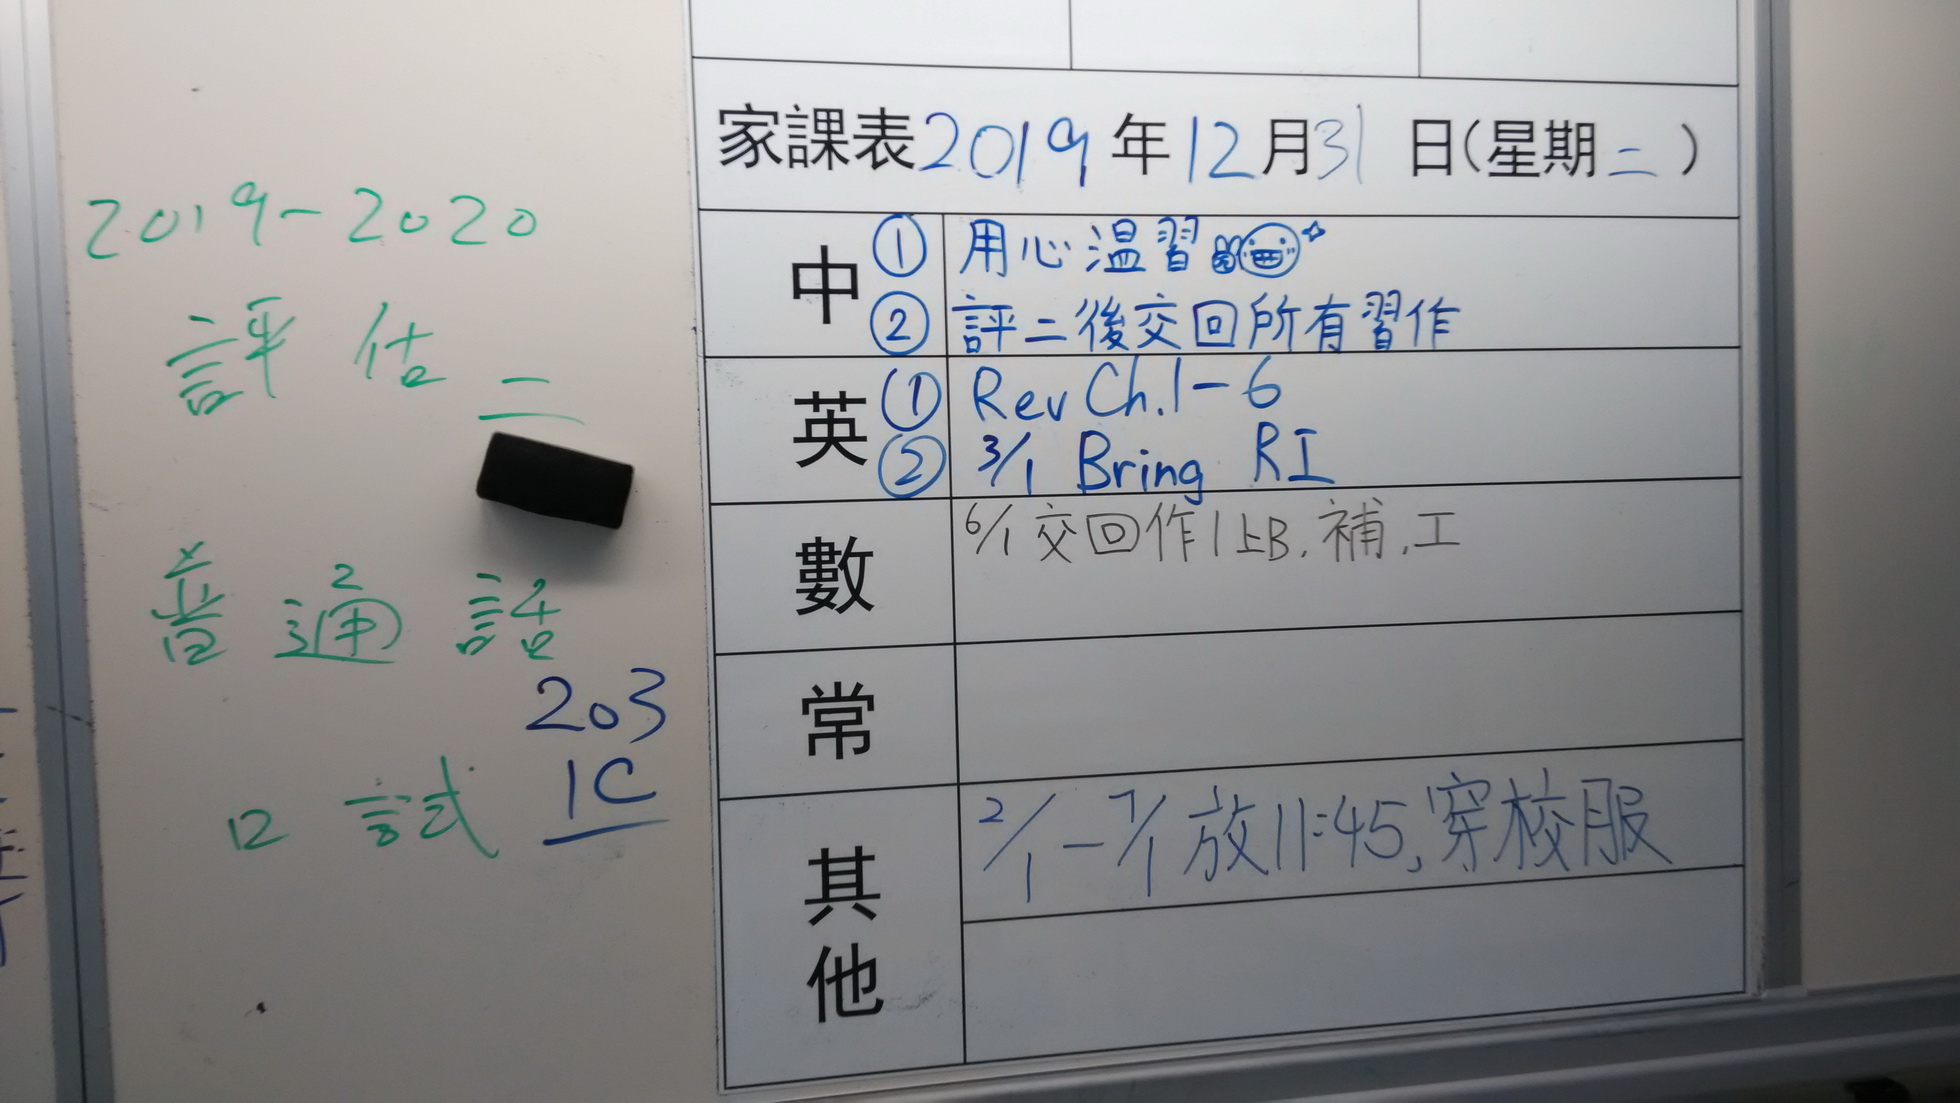 2019-2020
評估二
普通話
2
203
口試 1C
家課表2019年12月31日(星期二)
中 ① 用心温習
② 評二後交回所有習作
英 ① Rev Ch.1-6
② 3/1 Bring RI
數 6/1 交回作1上B, 補, 工
常
其他 2/1-7/1 放11:45, 穿校服